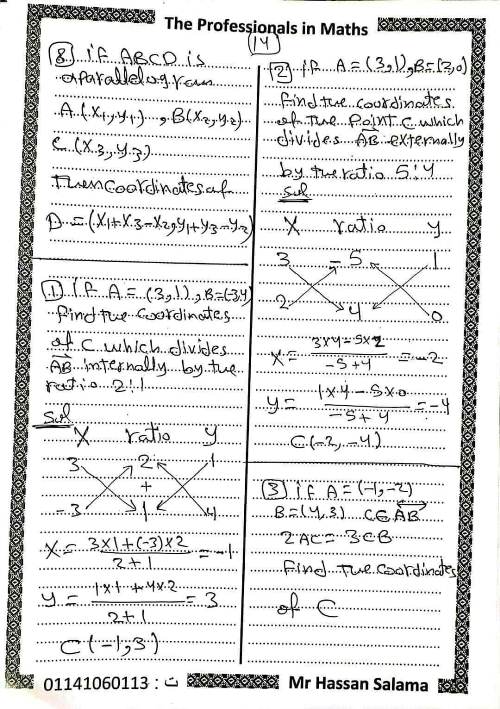 The Professionals in Maths
14
8 if ABCD is
aparallelogram
A (x1, y1) , B(x2, y2)
C (x3, y3)
then coordinates of
D = (x1+x3-x2, y1+y3-y2)
1 if A = (3,1), B=(-3,4)
find the coordinates
of C which divides
AB internally by the
ratio 2:1
Sol
X ratio y
3 2 1
+
-3 1 4
X = 3×1+(-3)×2 / 2+1 = -1
y = 1×1+4×2 / 2+1 = 3
C(-1,3)
2 if A = (3,1), B=(2,0)
find the coordinates
of the Point C which
divides AB externally
by the ratio 5:4
Sol
X ratio y
3 -5 1
2 4 0
X = 3×4-5×2 / -5+4 = -2
y = 1×4-5×0 / -5+4 = -4
C(-2,-4)
3 if A = (-1,-2)
B=(4,3) C∈AB
2AC = 3CB
find the coordinates
of C
01141060113 : ت
Mr Hassan Salama